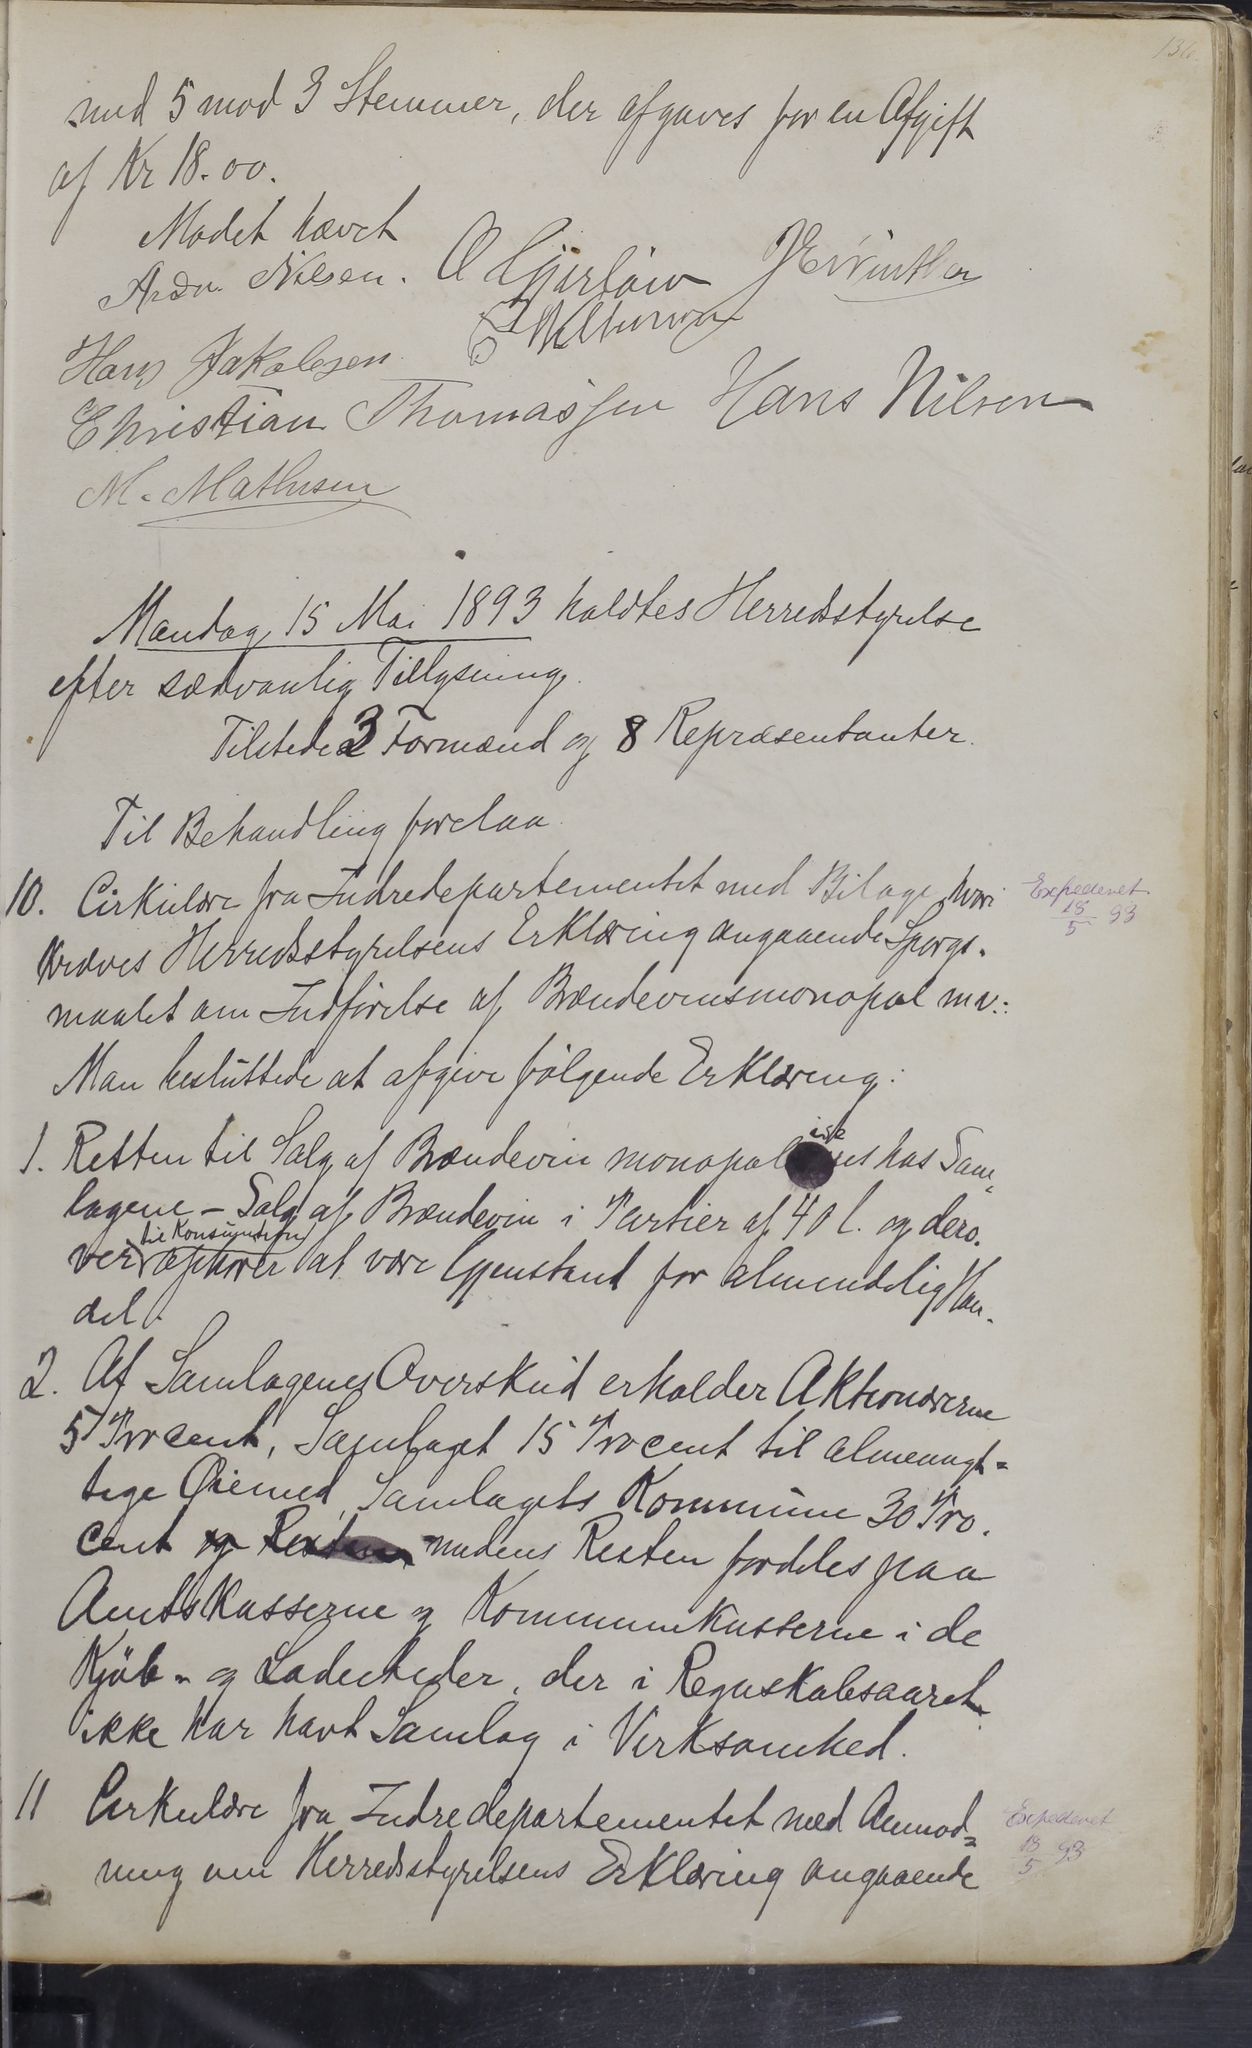 136.
med 5 mod 3 Stemmer, der afgaves for en Afgift
af Kr 18.00.
Mødet hævet
Andr. Nilsen. O Gjerløw J Winther
Hans Jakobsen
Christian Thomassen Hans Nilsen
M. Mathisen
Mandag 15 Mai 1893 holdtes Herredsstyrelse
efter sædvanlig Tillysning.
Tilstede 3 Formænd og 8 Repræsentanter.
Til Behandling forelaa
10. Cirkulære fra Indredepartementet med Bilage, hvori
kræves Herredsstyrelsens Erklæring angaaende Spørgs-
maalet om Indførelse af Brændevinsmonopol mv.:
Expederet
18/5 93
Man besluttede at afgive følgende Erklæring:
1. Retten til Salg af Brændevin monopoliseres hos Sam-
lagene - Salg af Brændevin i Partier af 40 l. og dero-
ver til Konsumtion ophører at være Gjenstand for almindelig Han-
del.
2. Af Samlagenes Overskud erholder Aktionærerne
5 Procent, Samlaget 15 Procent til almennyt-
tige Øiemed, Samlagets Kommune 30 Pro-
cent og Resten medens Resten fordeles paa
Amtskasserne og Kommunekasserne i de
Kjøb- og Ladesteder, der i Regnskabsaaret
ikke har havt Samlag i Virksomhed.
11 Cirkulære fra Indredepartementet med Anmod-
ning om Herredsstyrelsens Erklæring angaaende
Expederet
18/5 93